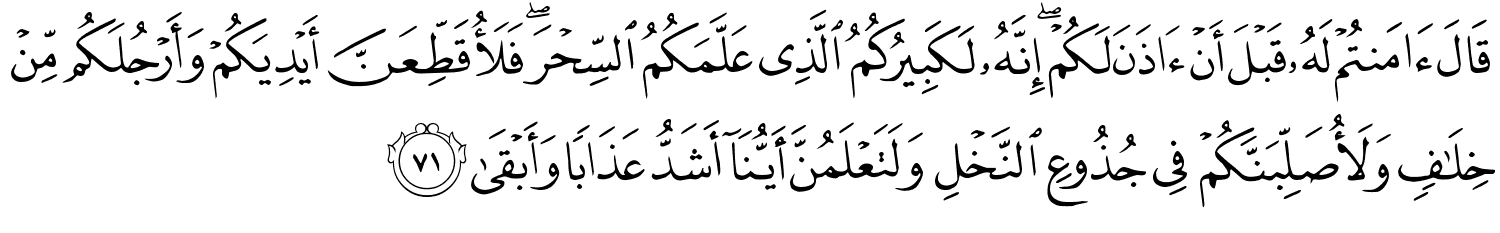 قَالَ ءَامَنتُمْ لَهُۥ قَبْلَ أَنْ ءَاذَنَ لَكُمْ ۖ إِنَّهُۥ لَكَبِيرُكُمُ ٱلَّذِى عَلَّمَكُمُ ٱلسِّحْرَ ۖ فَلَأُقَطِّعَنَّ أَيْدِيَكُمْ وَأَرْجُلَكُم مِّنْ
خِلَـٰفٍ وَلَأُصَلِّبَنَّكُمْ فِى جُذُوعِ ٱلنَّخْلِ وَلَتَعْلَمُنَّ أَيُّنَآ أَشَدُّ عَذَابًا وَأَبْقَىٰ ٧١